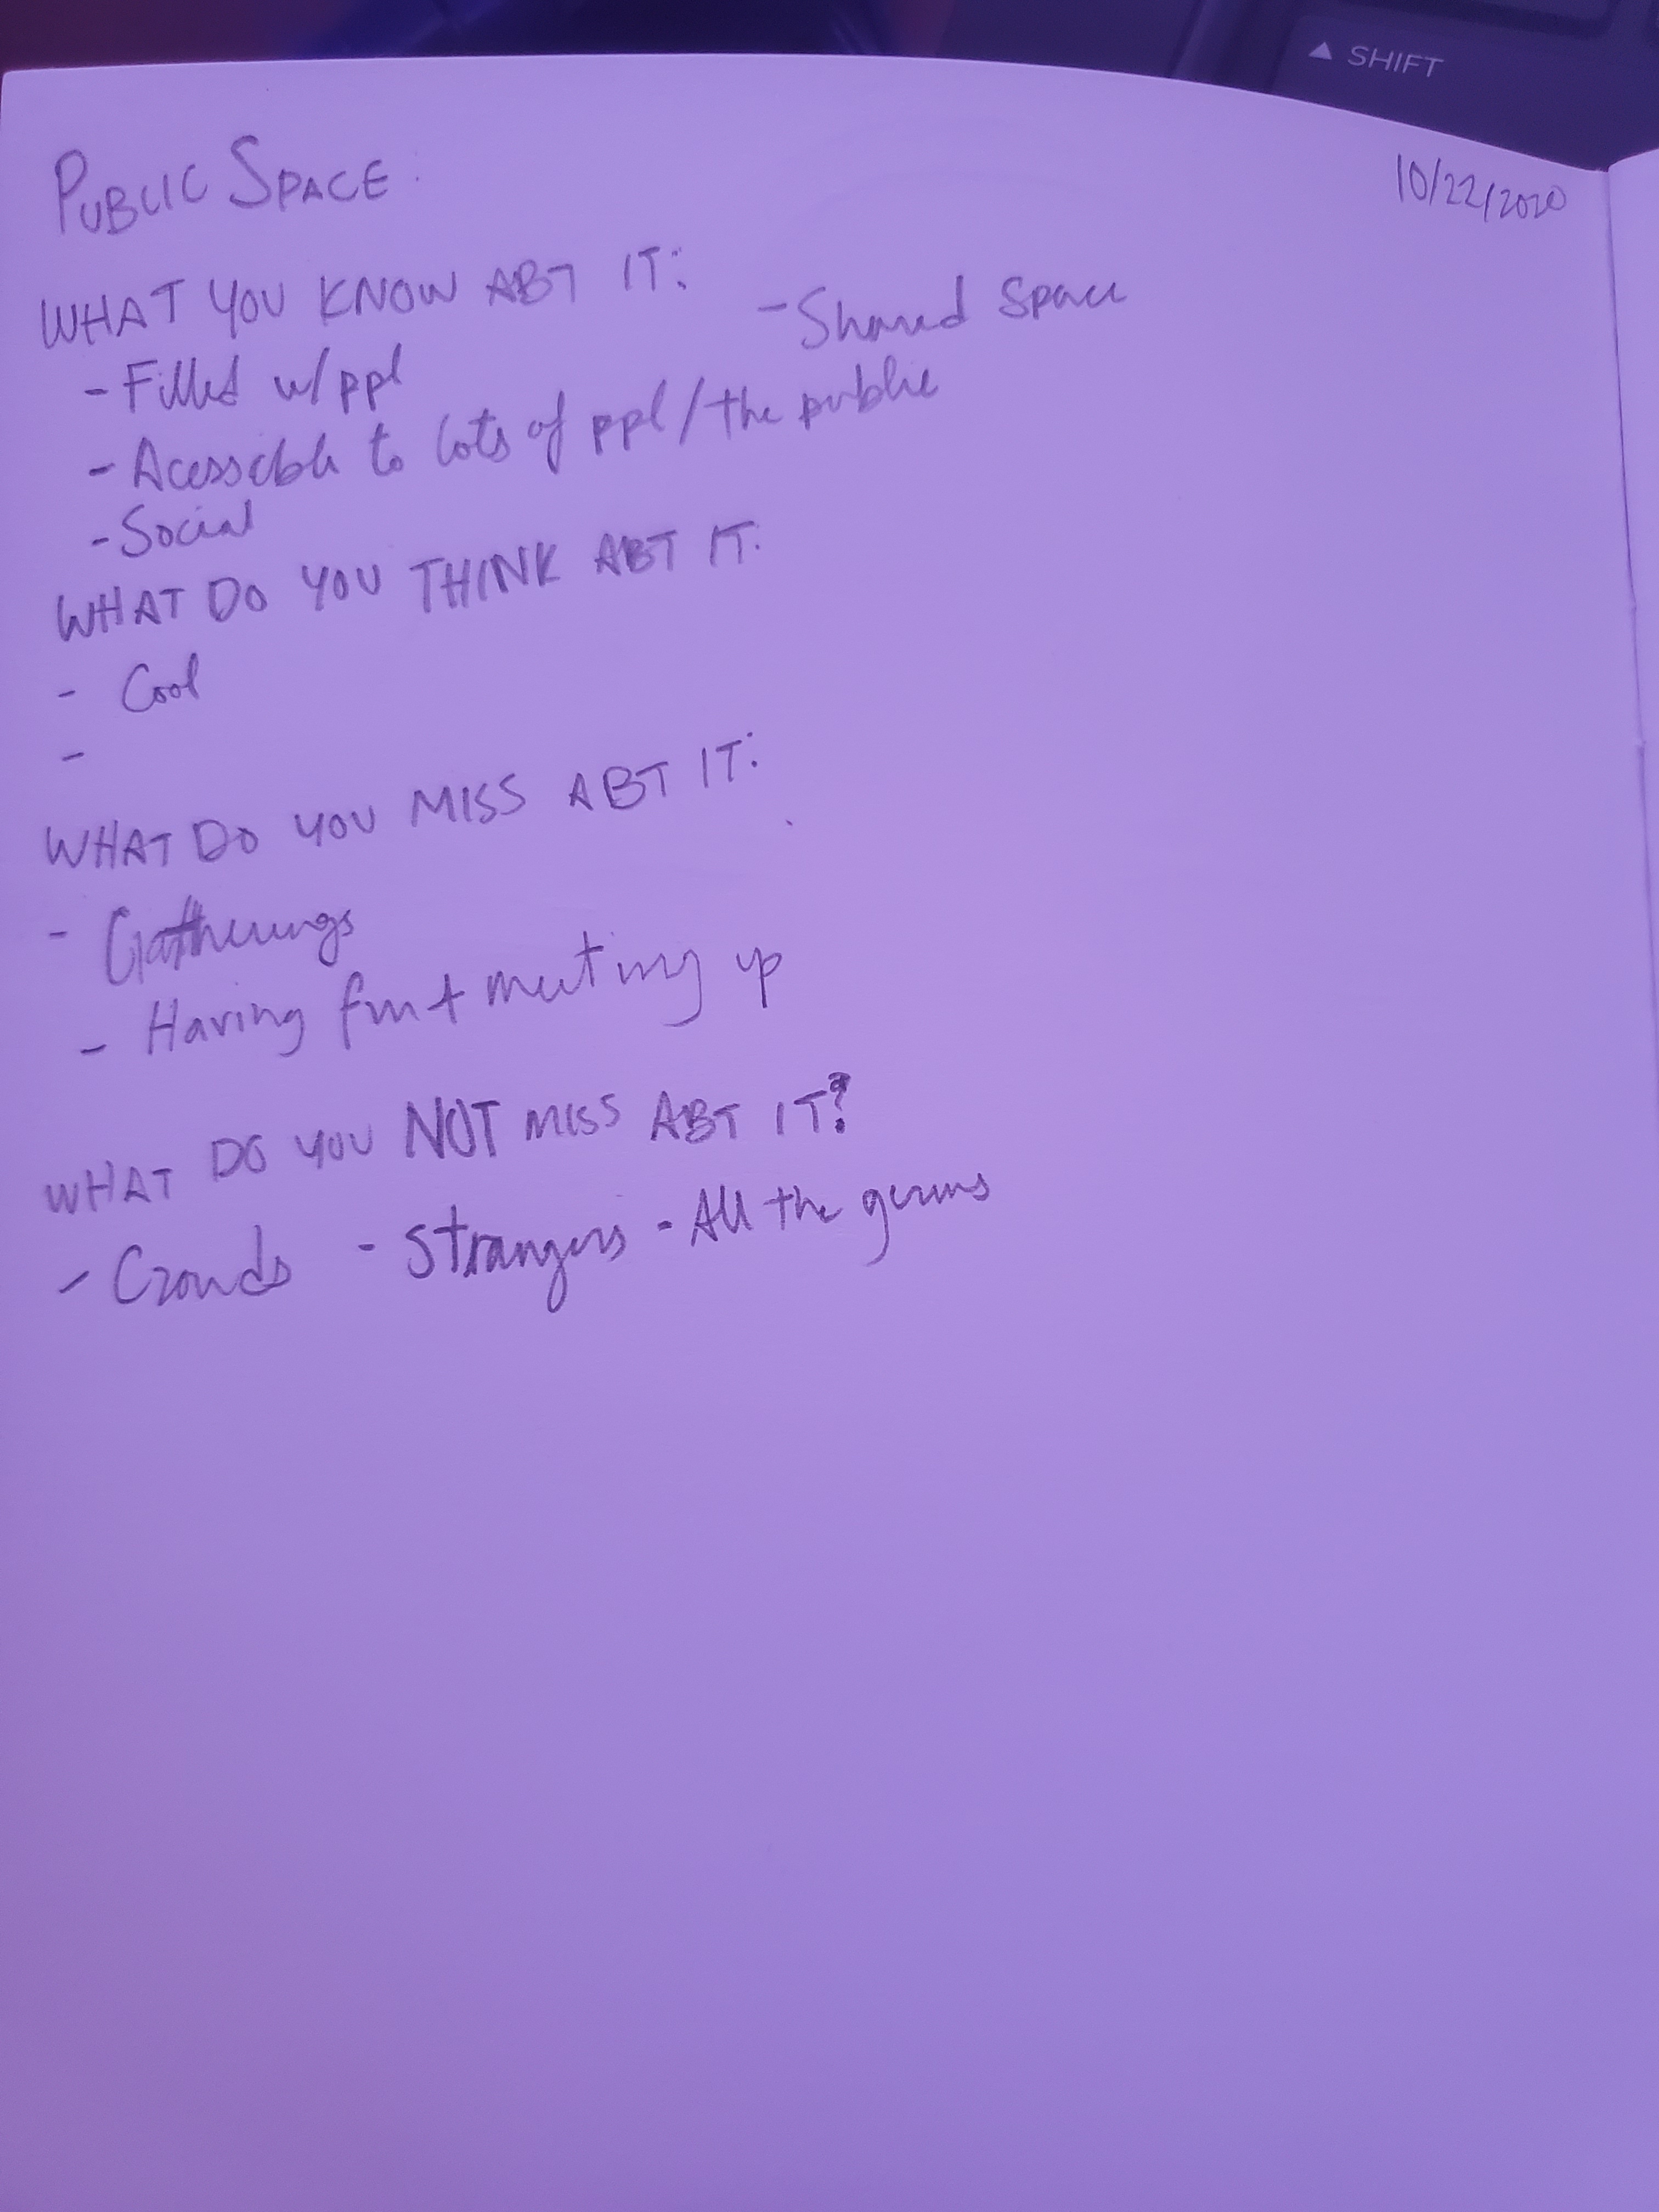 ▲ SHIFT
10/22/2020
PUBLIC SPACE:
WHAT YOU KNOW ABT IT:
- Shared Space
- Filled w/ppl
- Acessible to lots of ppl/the public
- Social
WHAT DO YOU THINK ABT IT:
- Cool
-
WHAT DO YOU MISS ABT IT:
- Gatherings
- Having fun + meeting up
WHAT DO YOU NOT MISS ABT IT?
- Crowds - Strangers - All the germs